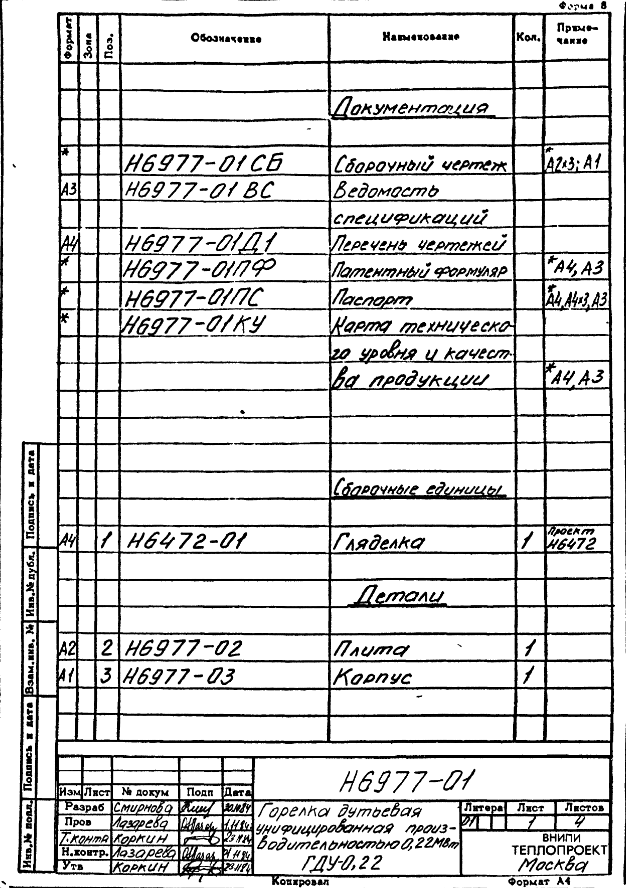 Форма 8
Формат Зона Поз. Обозначение Наименование Кол. Примечание
Документация
* Н6977-01СБ Сборочный чертеж *А2×3; А1
А3 Н6977-01ВС Ведомость
спецификаций
А4 Н6977-01Д1 Перечень чертежей
* Н6977-01ПФ Патентный формуляр *А4, А3
* Н6977-01ПС Паспорт *А4, А4×3, А3
* Н6977-01КУ Карта техническо-
го уровня и качест-
ва продукции *А4, А3
Сборочные единицы
А4 1 Н6472-01 Гляделка 1 Проект Н6472
Детали
А2 2 Н6977-02 Плита 1
А1 3 Н6977-03 Корпус 1
Подпись и дата
Инв.№ дубл.
Взам.инв. №
Подпись и дата
Инв.№ подл.
Н6977-01
Изм Лист № докум Подп Дата
Разраб Смирнова
Пров Лазарева
Т.контр Коркин
Н.контр. Лазарева
Утв Коркин
Горелка дутьевая
унифицированная произ-
водительностью 0,22МВт
ГДУ-0,22
Литера Лист Листов
1 4
ВНИПИ
ТЕПЛОПРОЕКТ
Москва
Копировал Формат А4